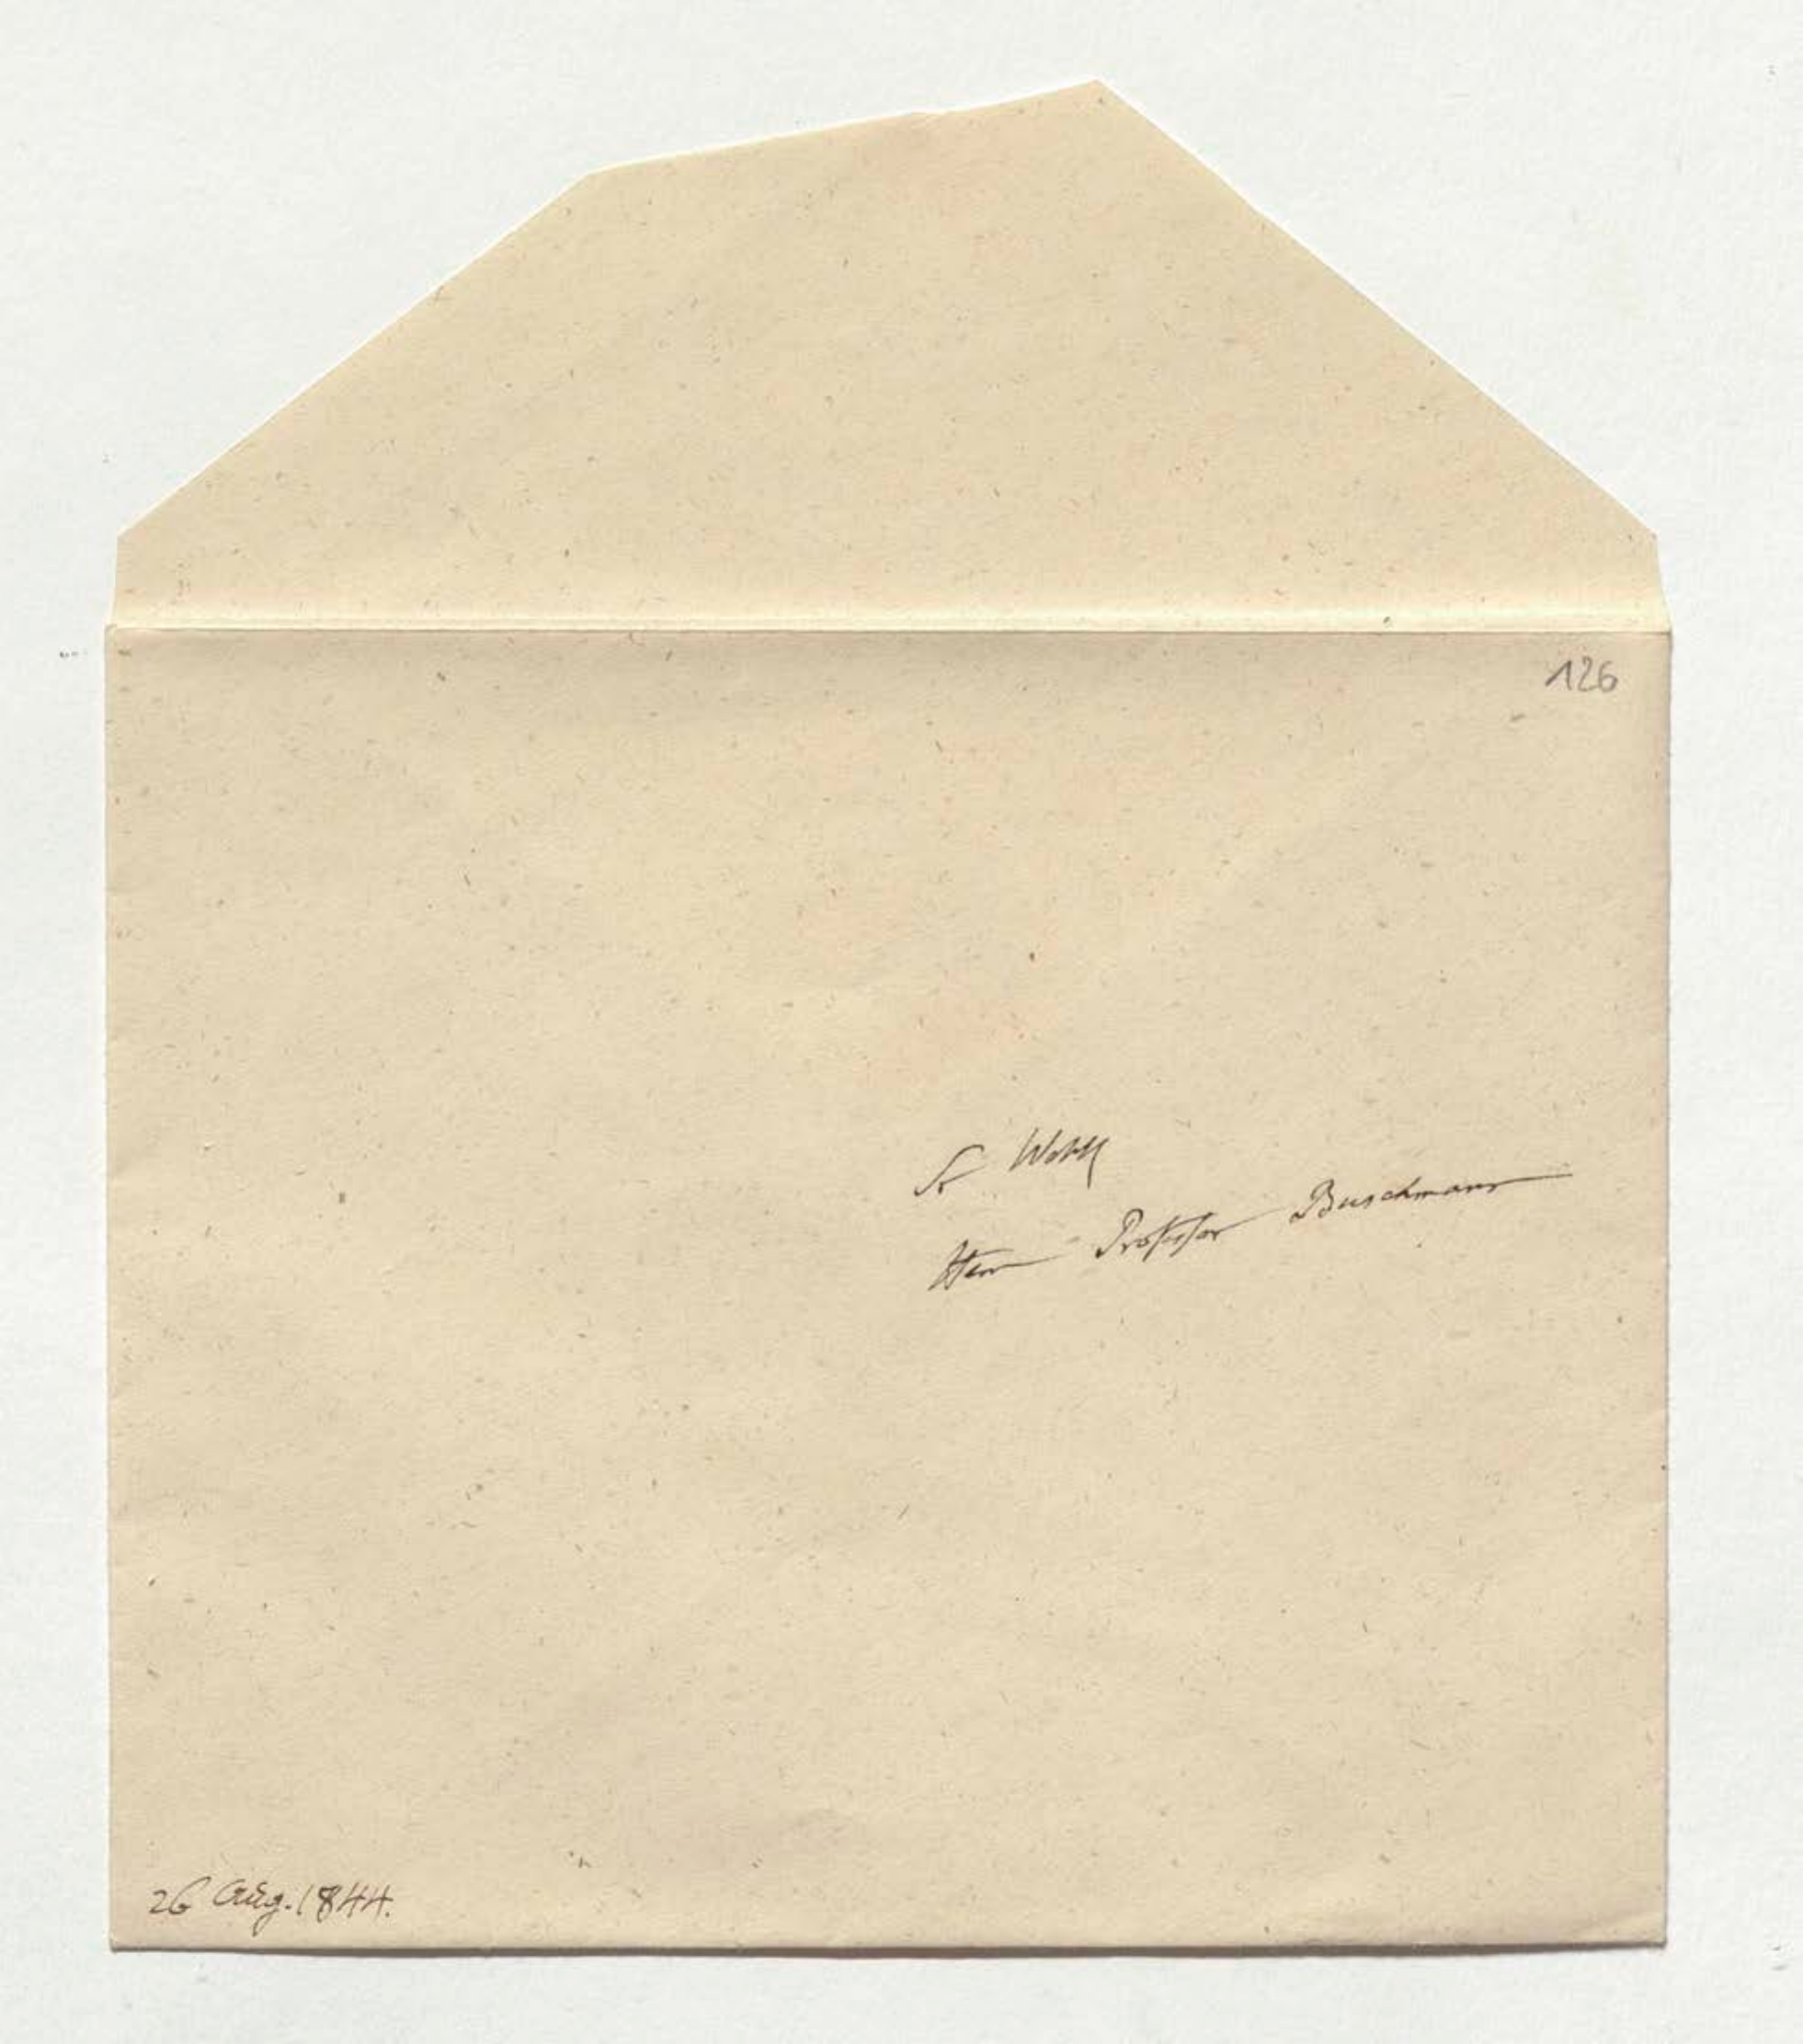 126
Sr Wohll
Herrn Professor Buschmann
26 Aug. 1844.